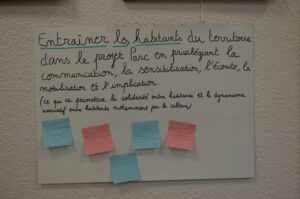 Entraîner les habitants du territoire
dans le projet Parc en privilégiant la
communication, la sensibilisation, l'écoute, la
mobilisation et l'implication
(ce qui va permettre la solidarité entre habitants et le dynamisme
associatif entre habitants notamment par la culture).